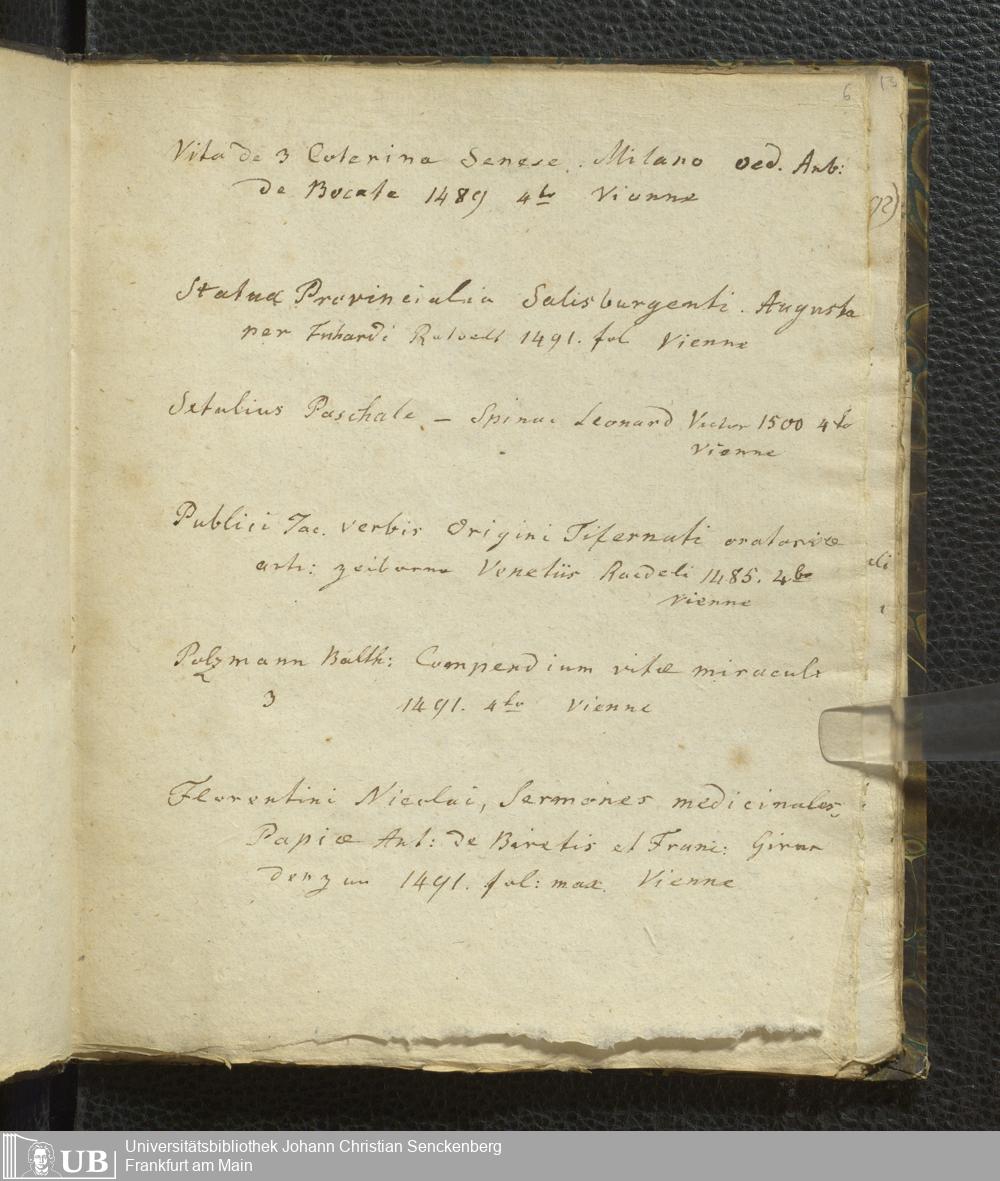 6 13
Vita de 3 Caterina Senese. Milano oed. Ant:
de Bocate 1489 4to Vienne
Statua Provincialia Salisburgenti. Augusta
per Ratvelt 1491. fol Vienne
Paschale – Leonard 1500 4to
Vienne
Publici Jac. verbis Origini Tifernati oratoriæ
arti: Venetiis 1485. 4to
Vienne
Polzmann Balth: Compendium vitæ miracul:
3 1491. 4to Vienne
Florentini Nicolai, Sermones medicinales,
Papiæ Ant: de Biretis et Franc: Girar
denzun 1491. fol: max. Vienne
UB
Universitätsbibliothek Johann Christian Senckenberg
Frankfurt am Main